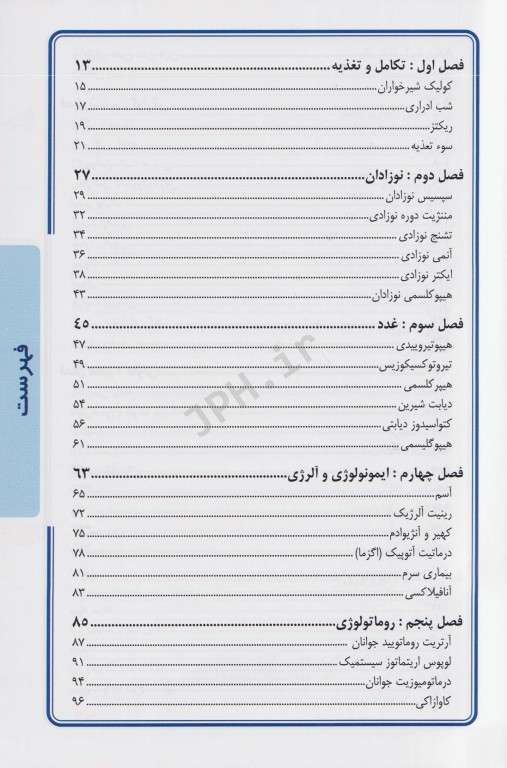 فصل اول : تکامل و تغذیه ........ ۱۳
کولیک شیرخواران ........ ۱۵
شب ادراری ........ ۱۷
ریکتز ........ ۱۹
سوء تغذیه ........ ۲۱
فصل دوم : نوزادان ........ ۲۷
سپسیس نوزادان ........ ۲۹
مننژیت دوره نوزادی ........ ۳۲
تشنج نوزادی ........ ۳۴
آنمی نوزادی ........ ۳۶
ایکتر نوزادی ........ ۳۸
هیپوکلسمی نوزادان ........ ۴۳
فصل سوم : غدد ........ ۴۵
هیپوتیروییدی ........ ۴۷
تیروتوکسیکوزیس ........ ۴۹
هیپرکلسمی ........ ۵۱
دیابت شیرین ........ ۵۴
کتواسیدوز دیابتی ........ ۵۶
هیپوگلیسمی ........ ۶۱
فصل چهارم : ایمونولوژی و آلرژی ........ ۶۳
آسم ........ ۶۵
رینیت آلرژیک ........ ۷۲
کهیر و آنژیوادم ........ ۷۵
درماتیت آتوپیک (اگزما) ........ ۷۸
بیماری سرم ........ ۸۱
آنافیلاکسی ........ ۸۳
فصل پنجم : روماتولوژی ........ ۸۵
آرتریت روماتویید جوانان ........ ۸۷
لوپوس اریتماتوز سیستمیک ........ ۹۱
درماتومیوزیت جوانان ........ ۹۴
کاوازاکی ........ ۹۶
فهرست
JPH.ir